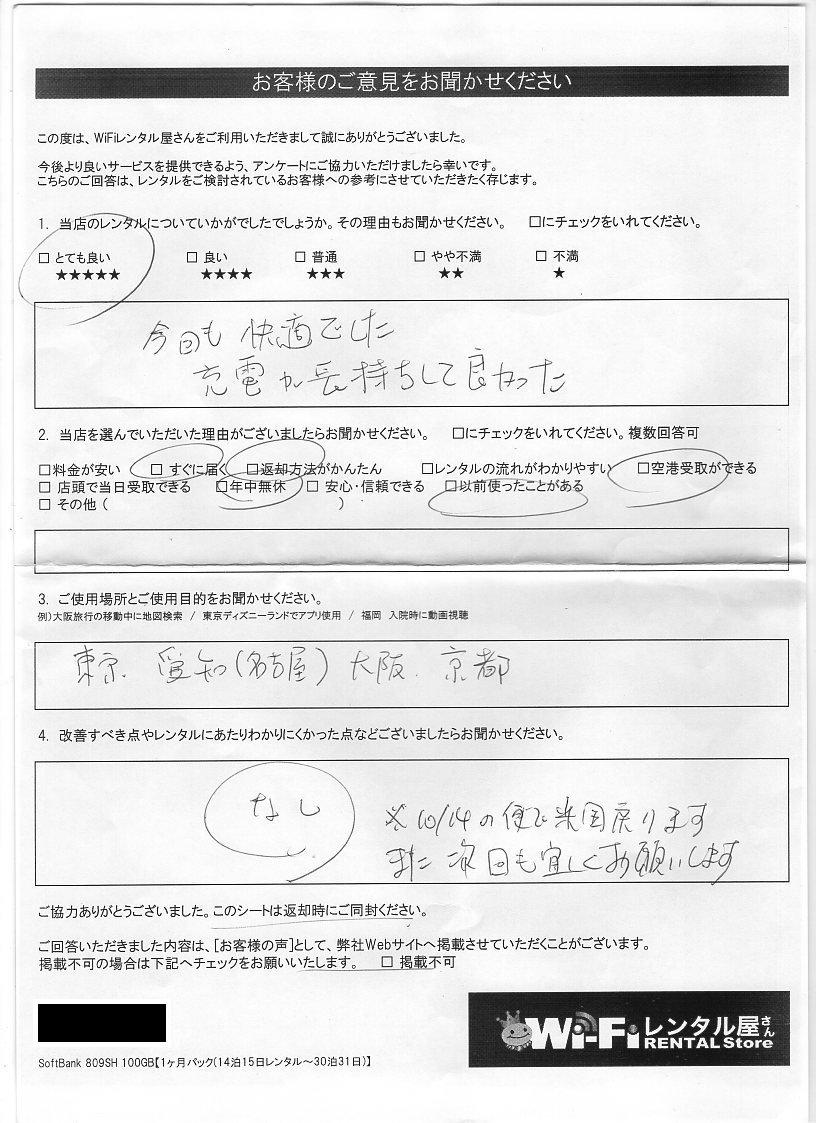 お客様のご意見をお聞かせください
この度は、WiFiレンタル屋さんをご利用いただきまして誠にありがとうございました。
今後より良いサービスを提供できるよう、アンケートにご協力いただけましたら幸いです。
こちらのご回答は、レンタルをご検討されているお客様への参考にさせていただきたく存じます。
1. 当店のレンタルについていかがでしたでしょうか。その理由もお聞かせください。 □にチェックをいれてください。
□ とても良い □ 良い □ 普通 □ やや不満 □ 不満
★★★★★ ★★★★ ★★★ ★★ ★
今回も快適でした
充電が長持ちして良かった
2. 当店を選んでいただいた理由がございましたらお聞かせください。 □にチェックをいれてください。複数回答可
□料金が安い □ すぐに届く □返却方法がかんたん □レンタルの流れがわかりやすい □空港受取ができる
□ 店頭で当日受取できる □年中無休 □ 安心・信頼できる □以前使ったことがある
□ その他（ ）
3. ご使用場所とご使用目的をお聞かせください。
例）大阪旅行の移動中に地図検索 / 東京ディズニーランドでアプリ使用 / 福岡 入院時に動画視聴
東京. 愛知(名古屋) 大阪. 京都
4. 改善すべき点やレンタルにあたりわかりにくかった点などございましたらお聞かせください。
なし
※10/14の便で米国戻ります
また次回も宜しくお願いします
ご協力ありがとうございました。このシートは返却時にご同封ください。
ご回答いただきました内容は、[お客様の声]として、弊社Webサイトへ掲載させていただくことがございます。
掲載不可の場合は下記へチェックをお願いいたします。 □ 掲載不可
Wi-Fiレンタル屋さん
RENTAL Store
SoftBank 809SH 100GB【1ヶ月パック(14泊15日レンタル～30泊31日)】